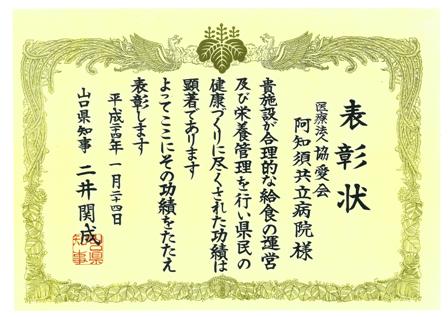 表彰状
医療法人 協愛会
阿知須共立病院 様
貴施設が合理的な給食の運営
及び栄養管理を行い県民の
健康づくりに尽くされた功績は
顕著であります
よってここにその功績をたたえ
表彰します
平成二十四年 一月二十四日
山口県知事 二井関成